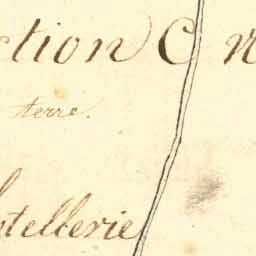 ction C n
terre.
tellerie